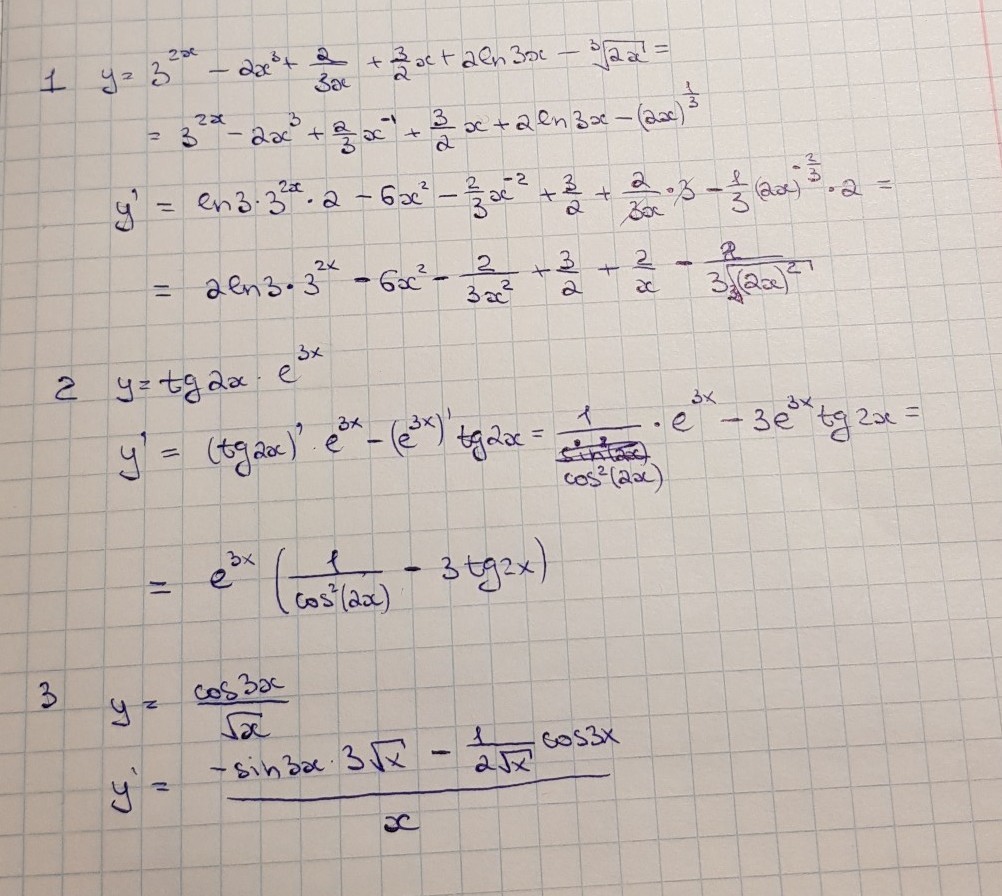 1 y = 3^{2x} - 2x^3 + \frac{2}{3x} + \frac{3}{2}x + 2ln3x - \sqrt[3]{2x} =
= 3^{2x} - 2x^3 + \frac{2}{3}x^{-1} + \frac{3}{2}x + 2ln3x - (2x)^{\frac{1}{3}}
y' = ln3·3^{2x}·2 - 6x^2 - \frac{2}{3}x^{-2} + \frac{3}{2} + \frac{2}{3x}·3 - \frac{1}{3}(2x)^{-\frac{2}{3}}·2 =
= 2ln3·3^{2x} - 6x^2 - \frac{2}{3x^2} + \frac{3}{2} + \frac{2}{x} - \frac{2}{3\sqrt[3]{(2x)^2}}
2 y = tg2x · e^{3x}
y' = (tg2x)' · e^{3x} - (e^{3x})' tg2x = \frac{1}{cos^2(2x)} · e^{3x} - 3e^{3x} tg2x =
= e^{3x} (\frac{1}{cos^2(2x)} - 3tg2x)
3 y = \frac{cos3x}{\sqrt{x}}
y' = \frac{-sin3x · 3\sqrt{x} - \frac{1}{2\sqrt{x}} cos3x}{x}